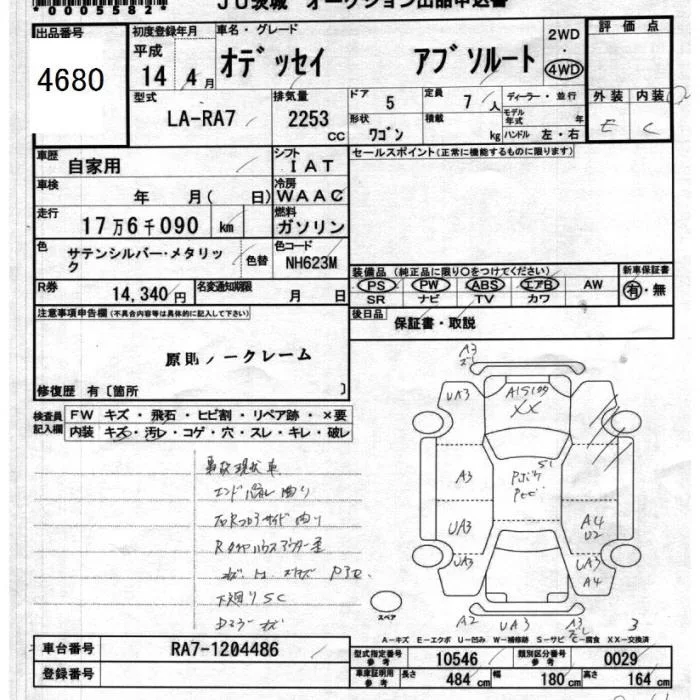 *0005582*
JU茨城 オークション出品申込書
出品番号 4680
初度登録年月 平成 14 4月
車名・グレード オデッセイ アブソルート
2WD ・ 4WD
評価点
外装 内装
E C
型式 LA-RA7
排気量 2253 CC
ドア 5 定員 7人
ディーラー・並行
形状 ワゴン 積載 kg
モデル年式 年
ハンドル 左・右
車歴 自家用
シフト IAT
セールスポイント(正常に機能するものに限ります)
車検 年 月( 日)
冷房 WAAC
走行 17万6千090 km
燃料 ガソリン
色 サテンシルバー・メタリック 色替
色コード NH623M
装備品 (純正品に限り○をつけてください)
PS PW ABS エアB AW
SR ナビ TV カワ
新車保証書 有・無
R券 14,340円
名変通知期限 月 日
後日品 保証書・取説
注意事項申告欄(不具合内容等は具体的に記入して下さい)
原則ノークレーム
修復歴 有〔箇所 〕
検査員記入欄
FW キズ・飛石・ヒビ割・リペア跡・×要
内装 キズ・汚レ・コゲ・穴・スレ・キレ・破レ
事故現状車
下廻りSC
A3
UA3
XX
A3
UA3
UA3
A4
U2
UA3
A4
A2 UA3 A3 3
スペア
A-キズ E-エクボ U-凹み W-補修跡 S-サビ C-腐食 XX-交換済
車台番号 RA7-1204486
登録番号
型式指定番号 参考 10546
類別区分番号 参考 0029
車庫証明用 参考 長さ 484 cm 幅 180 cm 高さ 164 cm